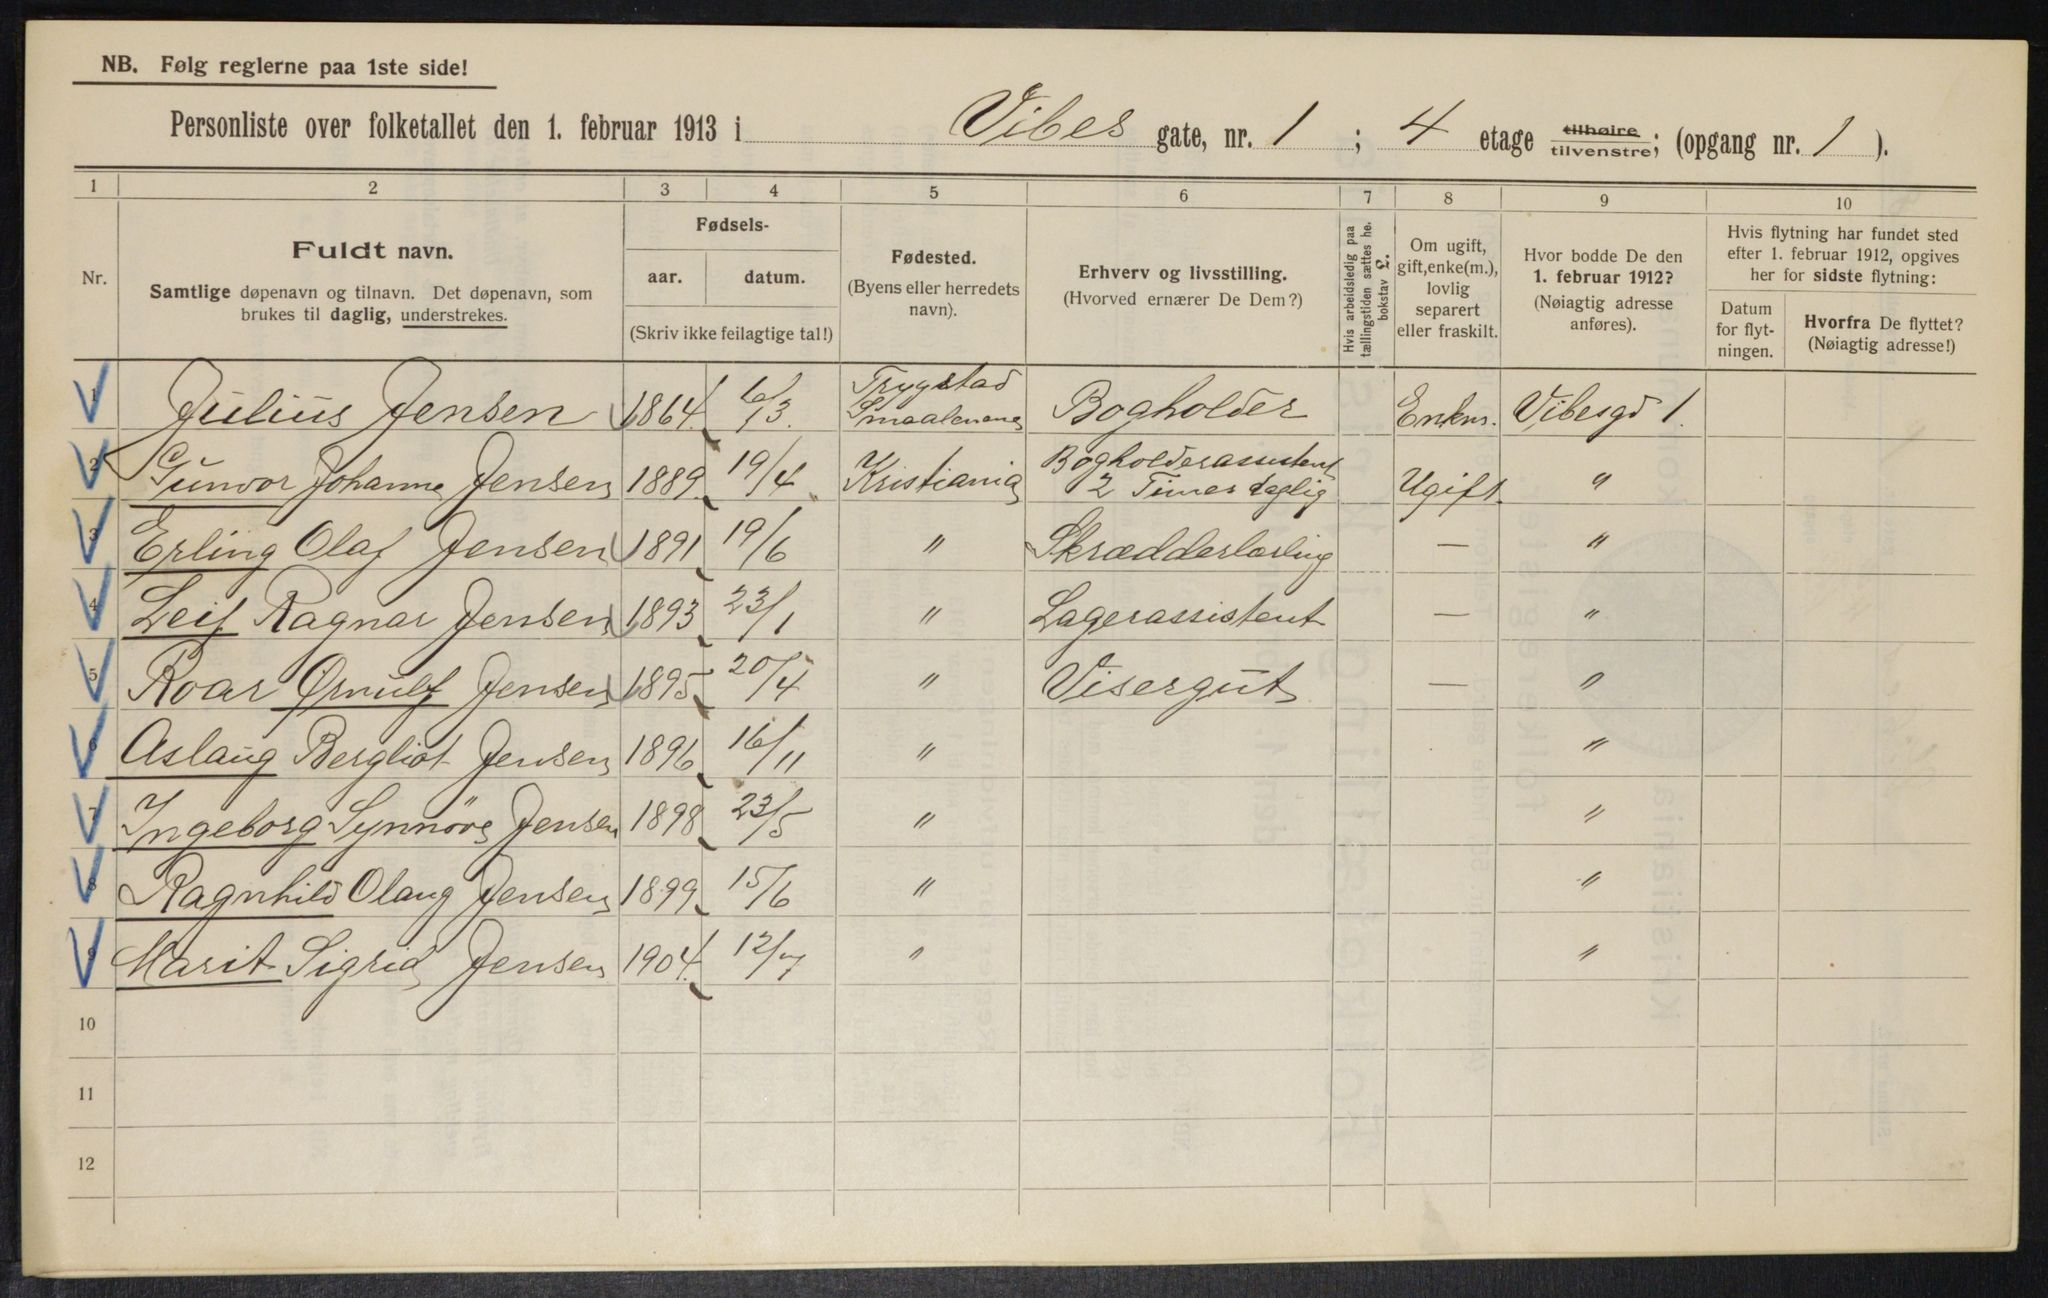 NB. Følg reglerne paa 1ste side!
Personliste over folketallet den 1. februar 1913 i Vibes gate, nr. 1 ; 4 etage tilhøire tilvenstre; (opgang nr. 1 ).
1 2 3 4 5 6 7 8 9 10
Nr.
Fuldt navn.
Samtlige døpenavn og tilnavn. Det døpenavn, som
brukes til daglig, understrekes.
Fødsels-
aar. datum.
(Skriv ikke feilagtige tal!)
Fødested.
(Byens eller herredets
navn).
Erhverv og livsstilling.
(Hvorved ernærer De Dem?)
Hvis arbeidsledig paa
tællingstiden sættes he.
bokstav L.
Om ugift,
gift, enke(m.),
lovlig
separert
eller fraskilt.
Hvor bodde De den
1. februar 1912?
(Nøiagtig adresse
anføres).
Hvis flytning har fundet sted
efter 1. februar 1912, opgives
her for sidste flytning:
Datum
for flyt-
ningen.
Hvorfra De flyttet?
(Nøiagtig adresse!)
1 Julius Jensen 1864. 6/3. Trygstad Smaalenene Bogholder Enkm. Vibesgd 1.
2 Gunvor Johanne Jensen 1889. 19/4 Kristiania Bogholderassistent 2 Timer daglig Ugift "
3 Erling Olaf Jensen 1891 19/6 " Skrædderlærling — "
4 Leif Ragnar Jensen 1893 23/1 " Lagerassistent — "
5 Roar Ørnulf Jensen 1895 20/4 " Visergut — "
6 Aslaug Bergliot Jensen 1896 16/11 " "
7 Ingeborg Synnöve Jensen 1898 23/5 " "
8 Ragnhild Olaug Jensen 1899 15/6 " "
9 Marit Sigrid Jensen 1904. 12/7 " "
10
11
12